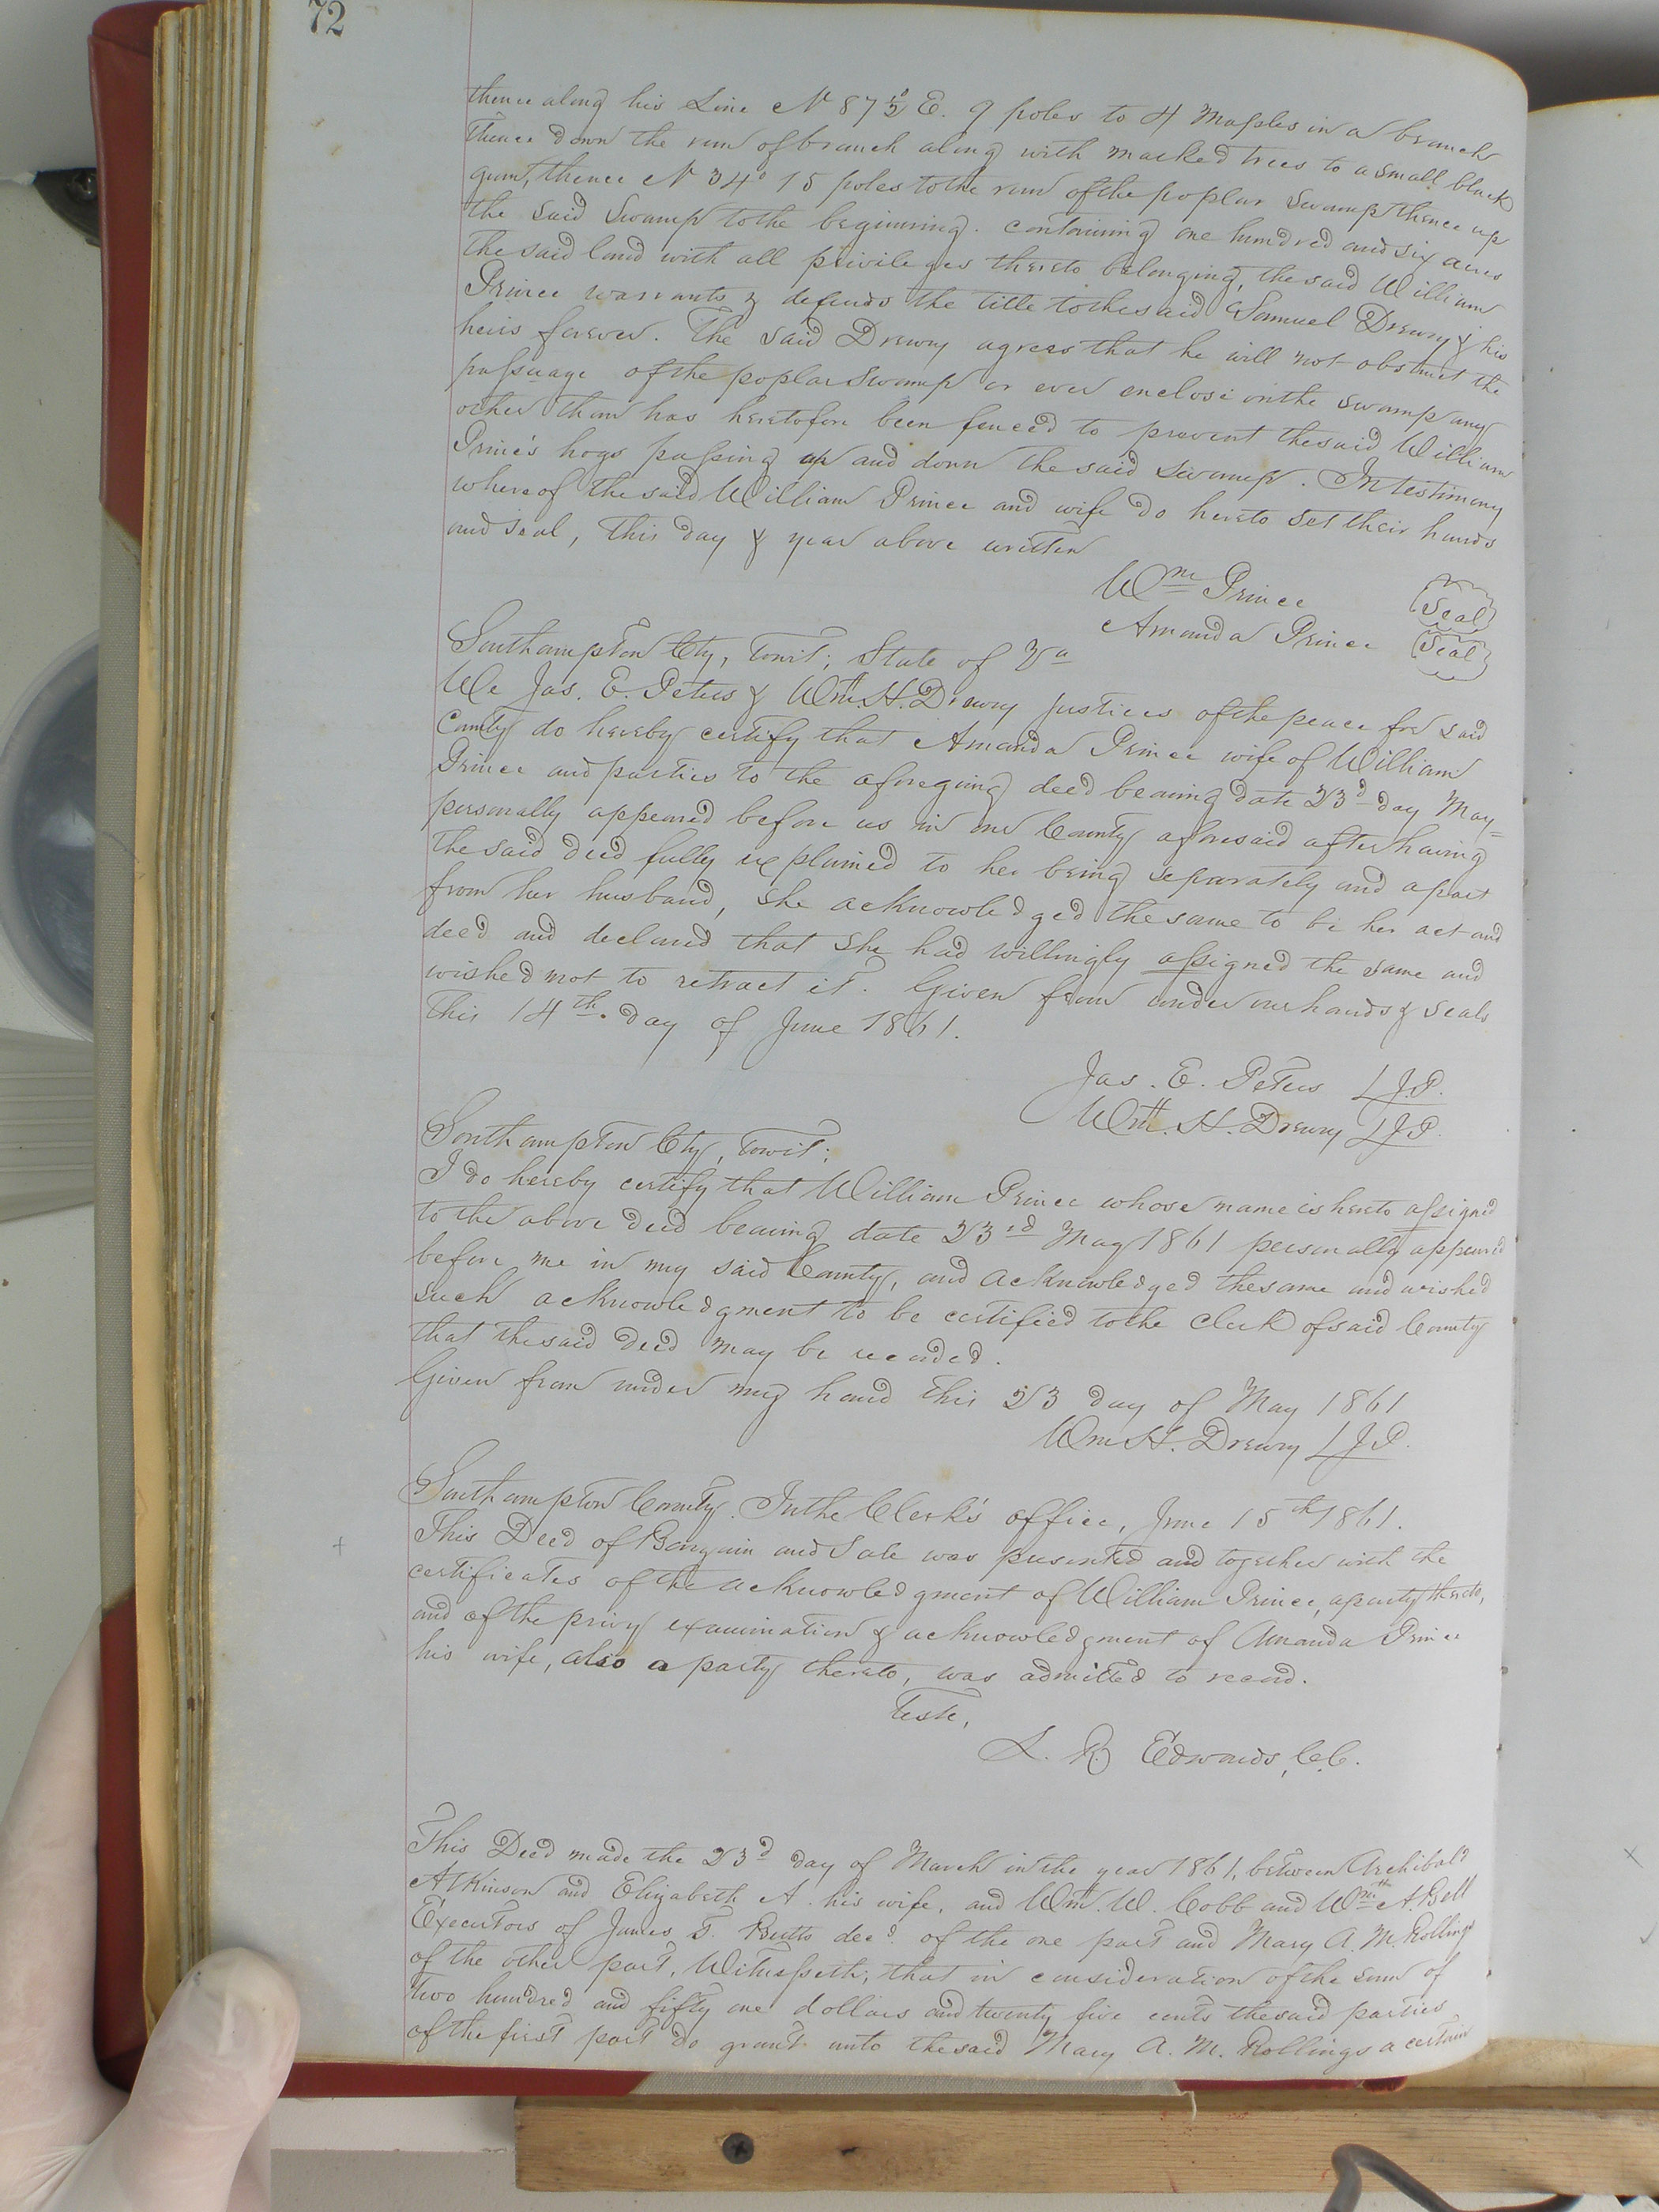 72
thence along his Line N 87½° E. 9 poles to 4 Maples in a branch
Thence down the run of branch along with marked trees to a small black
gum, thence N 34° 15 poles to the run of the poplar Swamp thence up
the said Swamp to the beginning. Containing one hundred and six acres
the said land with all privileges thereto belonging, the said William
Prince warrants & defends the title to the said Samuel Drewry & his
heirs forever. The said Drewry agrees that he will not obstruct the
passuage of the poplar Swamp or ever enclose in the swamp any
other than has heretofore been fenced to prevent the said William
Prince's hogs passing up and down the said swamp. In testimony
whereof the said William Prince and wife do hereto set their hands
and seal, This day & year above written
Wm Prince Seal
Amanda Prince Seal
Southampton Cty, Towit; State of Va
We Jas. E. Peters & Wm. H. Drewry justices of the peace for said
County do hereby certify that Amanda Prince wife of William
Prince and parties to the aforegoing deed bearing date 23d day May
personally appeared before us in our County aforesaid after having
the said deed fully explained to her being separately and apart
from her husband, she acknowledged the same to be her act and
deed and declared that she had willingly assigned the same and
wished not to retract it. Given from under our hands & seals
This 14th. day of June 1861.
Jas. E. Peters J.P.
Wm. H. Drewry J.P.
Southampton Cty, Towit;
I do hereby certify that William Prince whose name is hereto assigned
to the above deed bearing date 23rd May 1861 personally appeared
before me in my said County, and acknowledged the same and wished
such acknowledgment to be certified to the Clerk of said County
that the said deed may be recorded.
Given from under my hand this 23 day of May 1861
Wm H. Drewry J.P.
Southampton County. In the Clerk's office, June 15th 1861.
This Deed of Bargain and Sale was presented and together with the
certificates of the acknowledgment of William Prince, a party thereto,
and of the privy examination & acknowledgment of Amanda Prince
his wife, also a party thereto, was admitted to record.
Teste,
L. R Edwards, C.C.
This Deed made the 23d day of March in the year 1861, between Archibald
Atkinson and Elizabeth A. his wife, and Wm. W. Cobb and Wm A. Bell
Executors of James T. Butts decd. of the one part and Mary A. M. Rollings
of the other part, Witnesseth; that in consideration of the sum of
Two hundred and fifty one dollars and twenty five cents the said parties
of the first part do grant unto the said Mary A. M. Rollings a certain